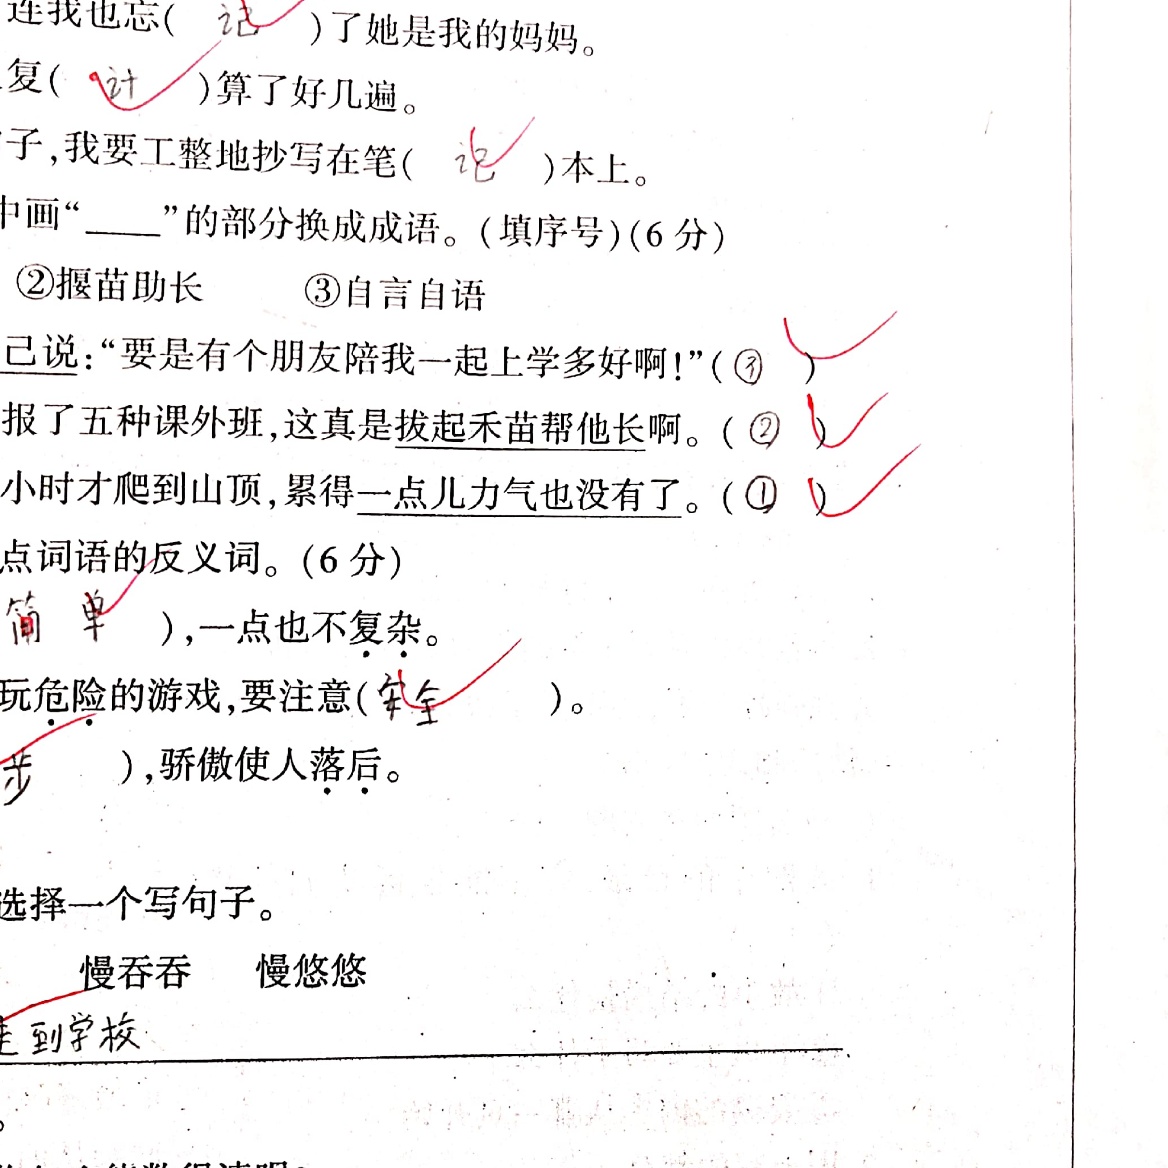 连我也忘( 记 )了她是我的妈妈。
复( 计 )算了好几遍。
子,我要工整地抄写在笔( 记 )本上。
中画“____”的部分换成成语。(填序号)(6分)
②揠苗助长 ③自言自语
己说:“要是有个朋友陪我一起上学多好啊!”( ③ )
报了五种课外班,这真是拔起禾苗帮他长啊。( ② )
小时才爬到山顶,累得一点儿力气也没有了。( ① )
点词语的反义词。(6分)
简单 ),一点也不复杂。
玩危险的游戏,要注意( 安全 )。
步 ),骄傲使人落后。
选择一个写句子。
慢吞吞 慢悠悠
走到学校
。